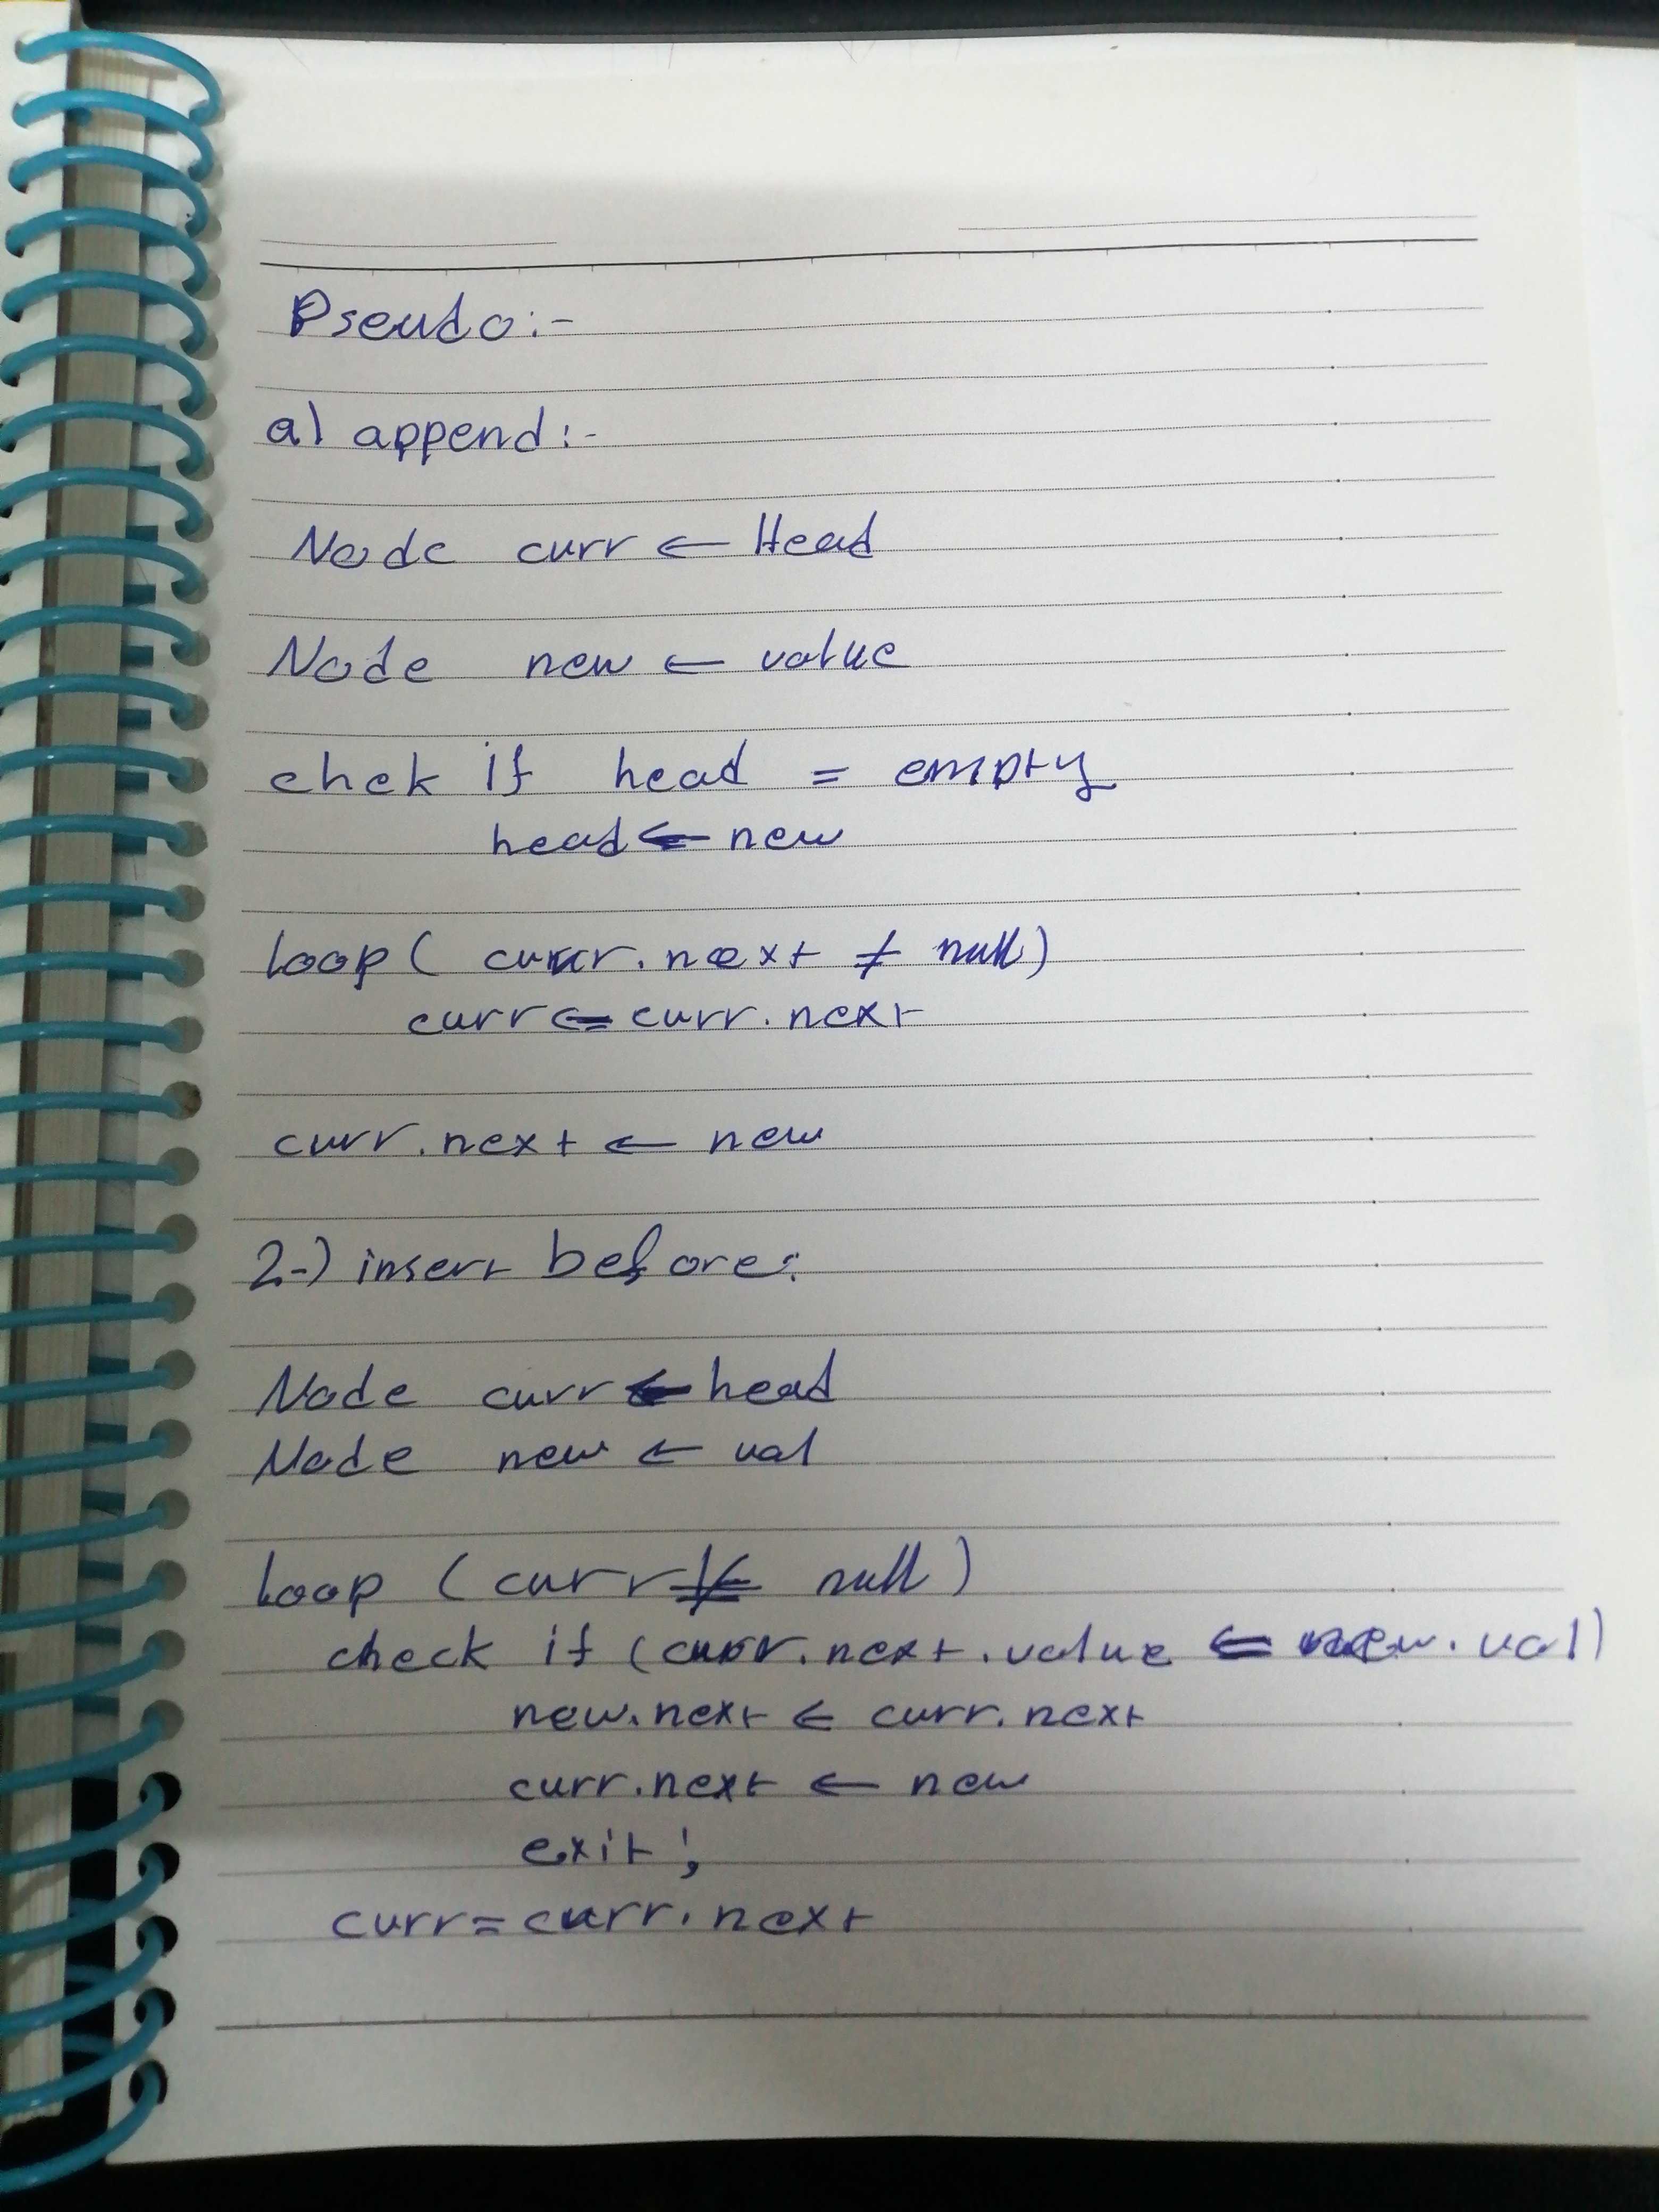 Pseudo:-
a) append:-
Node curr ← Head
Node new ← value
chek if head = empty
head ← new
loop( curr.next ≠ null)
curr ← curr.next
curr.next ← new
2-) insert before:
Node curr ← head
Node new ← val
loop (curr ≠ null)
check if (curr.next.value ⇐ new.val)
new.next ← curr.next
curr.next ← new
exit;
curr=curr.next